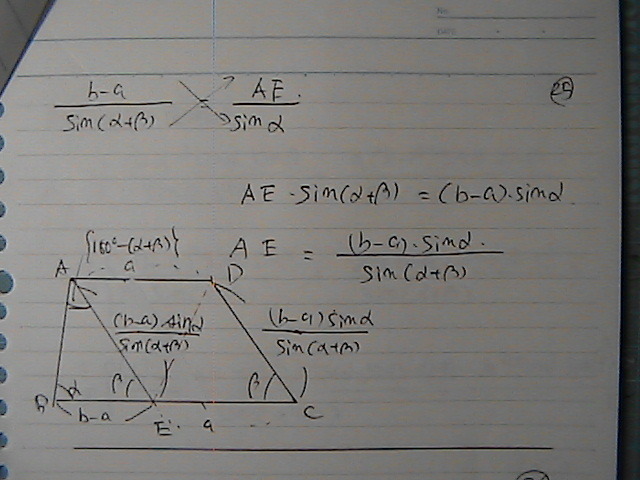 No.
DATE
b-a / sin(α+β) = AE. / sinα
25
AE・sin(α+β) = (b-a)・sinα.
AE = (b-a)・sinα. / sin(α+β)
{180°-(α+β)}
A a D
(b-a) sinα / sin(α+β) (b-a) sinα / sin(α+β)
B α β β
b-a E a C